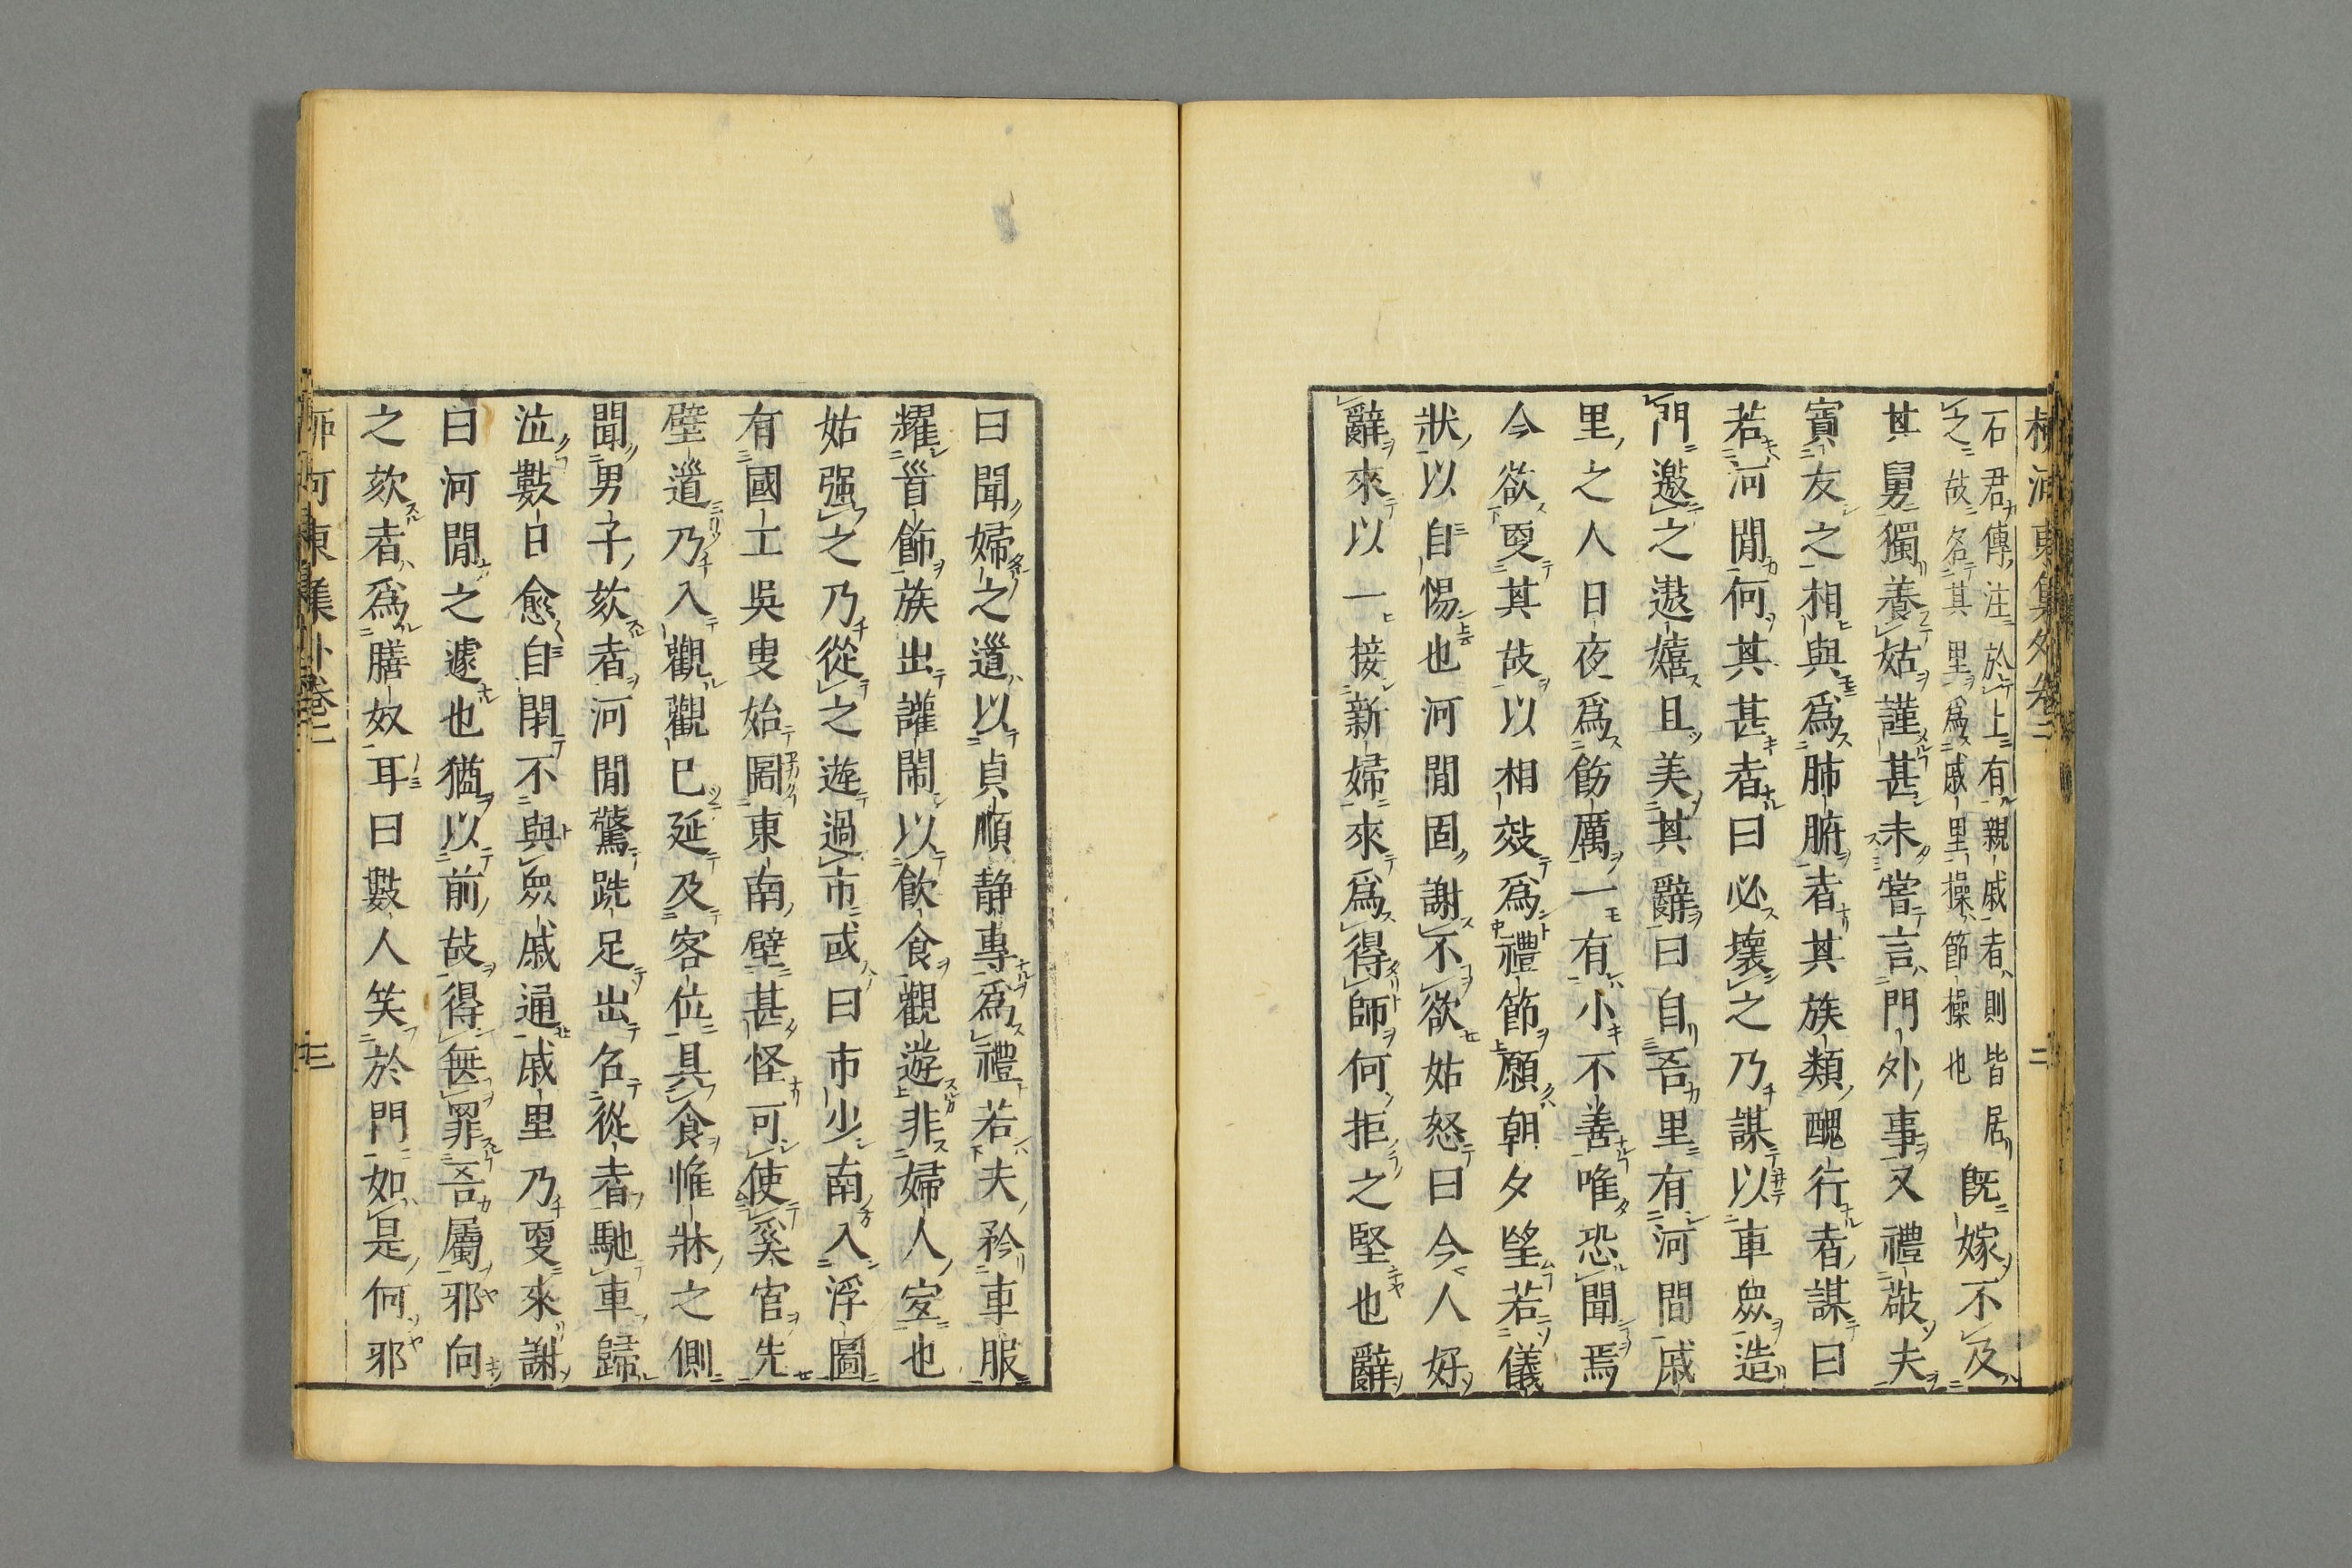 柳河東集外卷二
二
石君傳注於上有親戚者則皆居
之故名其里爲戚里操節操也
旣嫁不及
其舅獨養姑謹甚未嘗言門外事又禮敬夫
賓友之相與爲肺腑者其族類醜行者謀曰
若河閒何其甚者曰必壞之乃謀以車衆造
門邀之遨嬉且美其辭曰自吾里有河間戚
里之人日夜爲飭厲一有小不善唯恐聞焉
今欲更其故以相效爲禮節願朝夕望若儀
狀以自惕也河閒固謝不欲姑怒曰今人好
辭來以一接新婦來爲得師何拒之堅也辭
曰聞婦之道以貞順静專爲禮若夫矜車服
耀首飾族出讙鬧以飲食觀遊非婦人宐也
姑强之乃從之遊過市或曰市少南入浮圖
有國工吳叟始圖東南壁甚怪可使奚官先
壁道乃入觀觀已延及客位具食帷牀之側
聞男子欬者河閒驚跣足出召從者馳車歸
泣數日愈自閉不與衆戚通戚里乃更來謝
曰河閒之遽也猶以前故得無罪吾屬邪向
之欬者爲膳奴耳曰數人笑於門如是何邪
柳河東集外卷二
三